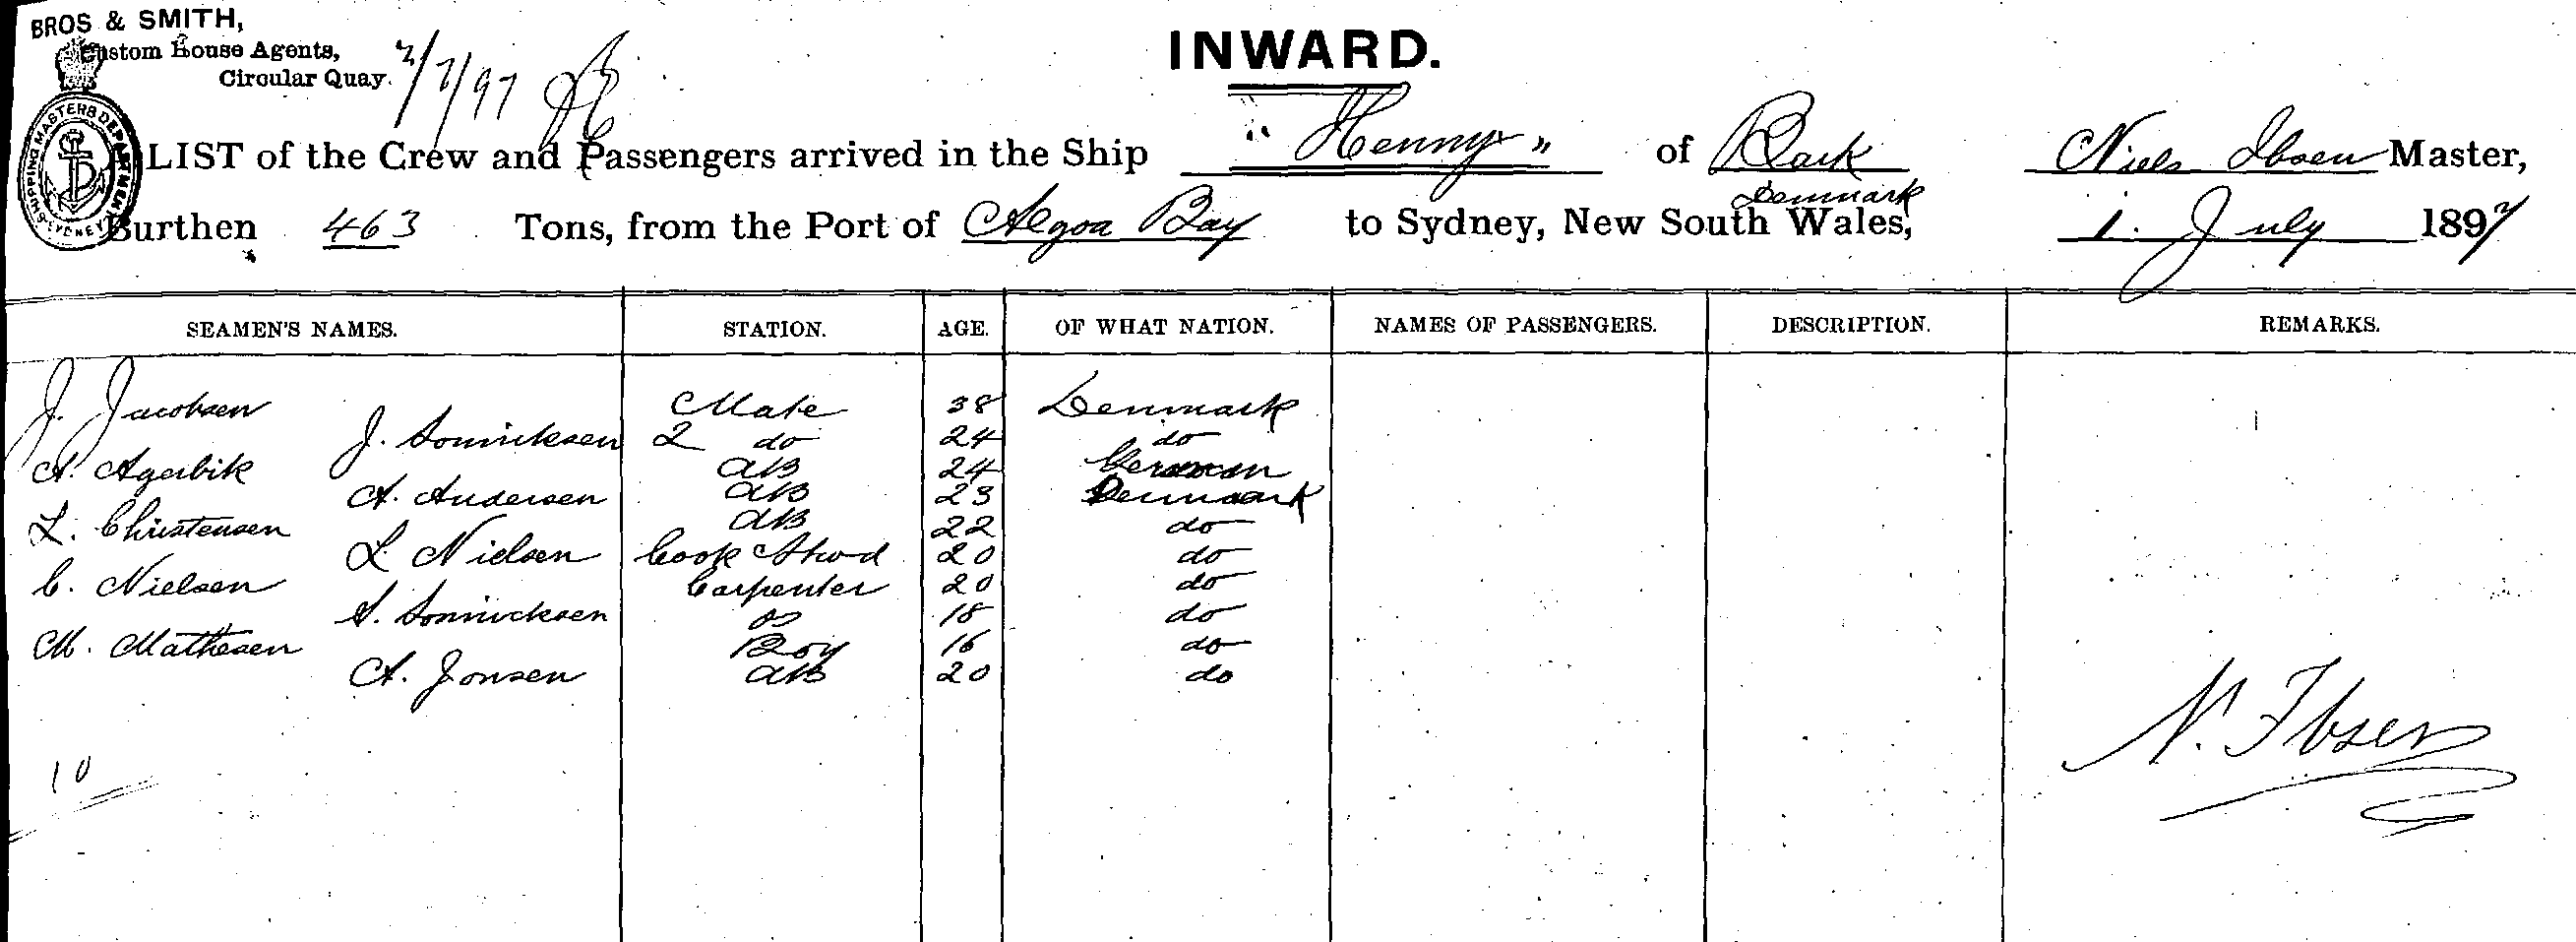 BROS & SMITH,
Custom House Agents,
Circular Quay.
2/7/97
INWARD.
SHIPPING MASTERS DEPARTMENT SYDNEY
LIST of the Crew and Passengers arrived in the Ship "Henny" of Bark Niels Ibsen Master,
Denmark
Burthen 463 Tons, from the Port of Algoa Bay to Sydney, New South Wales, 1. July 1897
SEAMEN'S NAMES. STATION. AGE. OF WHAT NATION. NAMES OF PASSENGERS. DESCRIPTION. REMARKS.
J. Jacobsen Mate 38 Denmark
J. Sonnicksen 2 do 24 do
A. Agerbik AB 24 German
A. Andersen AB 23 Denmark
L. Christensen AB 22 do
L Nielsen Cook Stwd 20 do
C. Nielsen Carpenter 20 do
S. Sonnicksen os 18 do
M. Mathesen Boy 16 do
A. Jonsen AB 20 do
N. Ibsen
10